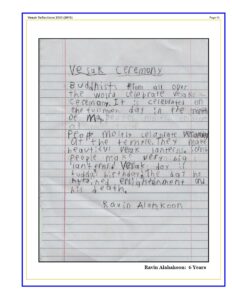 Vesak Reflections 2559 (2015)
Vesak Ceremony
Buddhists from all over
the world celebrate Vesak
Ceremony. It is celebrated on
the full moon day in the month
of May
People mostly celebrate
at the temple. They make
beautiful vesak lanterns. Some
people make very big
lanterns. Vesak day is
Buddas birthday. The day he
attained enlightenment and
his death.
Ravin Alahakoon
Ravin Alahakoon: 6 Years